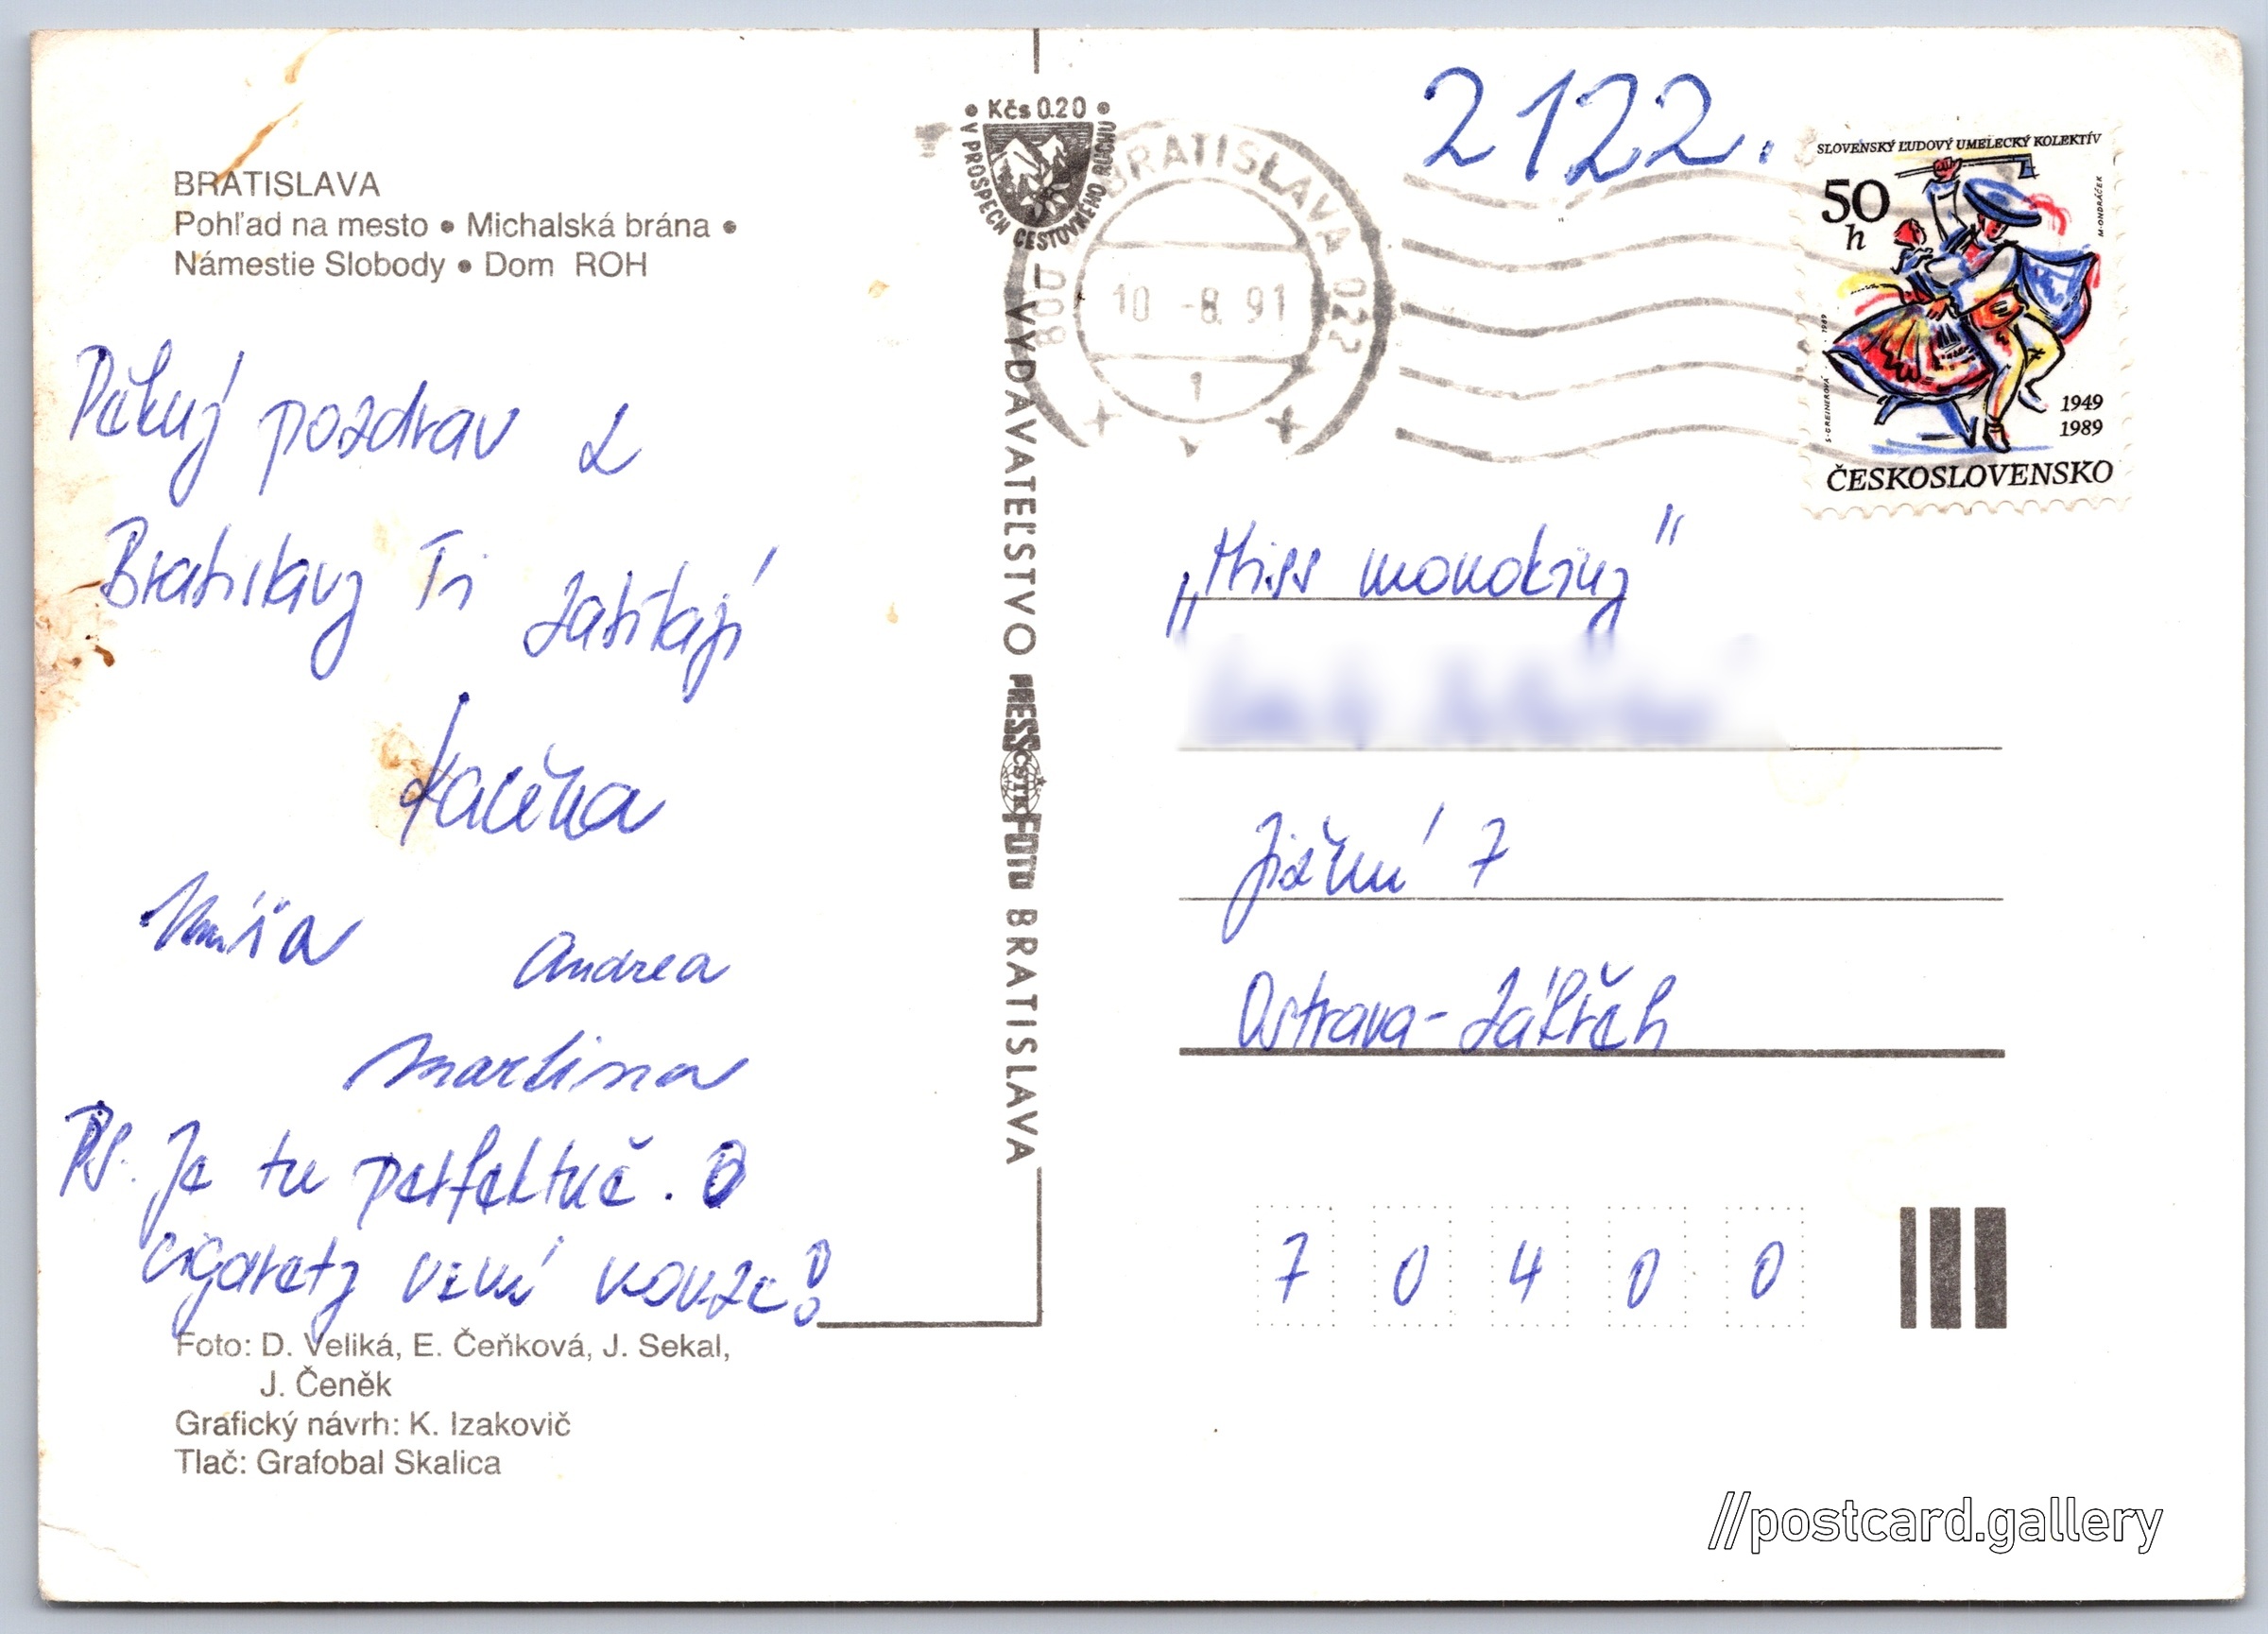 BRATISLAVA
Pohľad na mesto • Michalská brána •
Námestie Slobody • Dom ROH
Pěkný pozdrav z
Bratislavy Ti zasílají
Kačena
Míša Andrea
Martina
PS. Je tu perfektně. O
cigarety není nouze!
Foto: D. Veliká, E. Čeňková, J. Sekal,
J. Čeněk
Grafický návrh: K. Izakovič
Tlač: Grafobal Skalica
• Kčs 0.20 •
V PROSPECH CESTOVNÉHO RUCHU
VYDAVATEĽSTVO PRESSFOTO BRATISLAVA
ČSTK
BRATISLAVA 022
10 -8. 91
1
2122.
SLOVENSKÝ ĽUDOVÝ UMELECKÝ KOLEKTÍV
50
h
M. ONDRÁČEK
S. GREINEROVÁ · 1989
1949
1989
ČESKOSLOVENSKO
„Miss monokiny"
Jižní 7
Ostrava-Zábřeh
7 0 4 0 0
//postcard.gallery